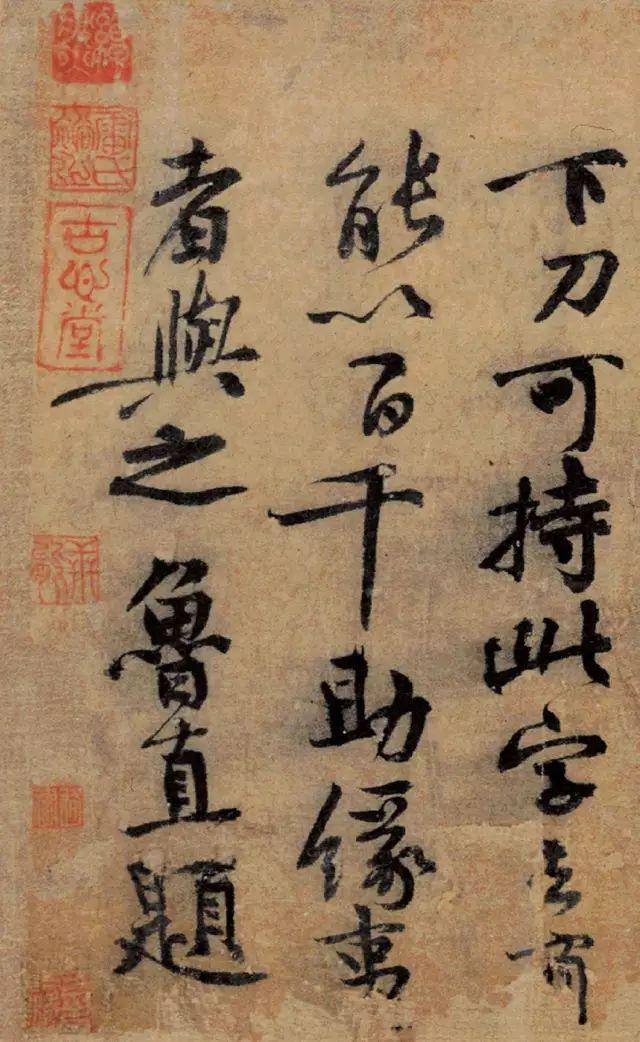 下刀可持此字去
能以百千助緣事
者與之 魯直題